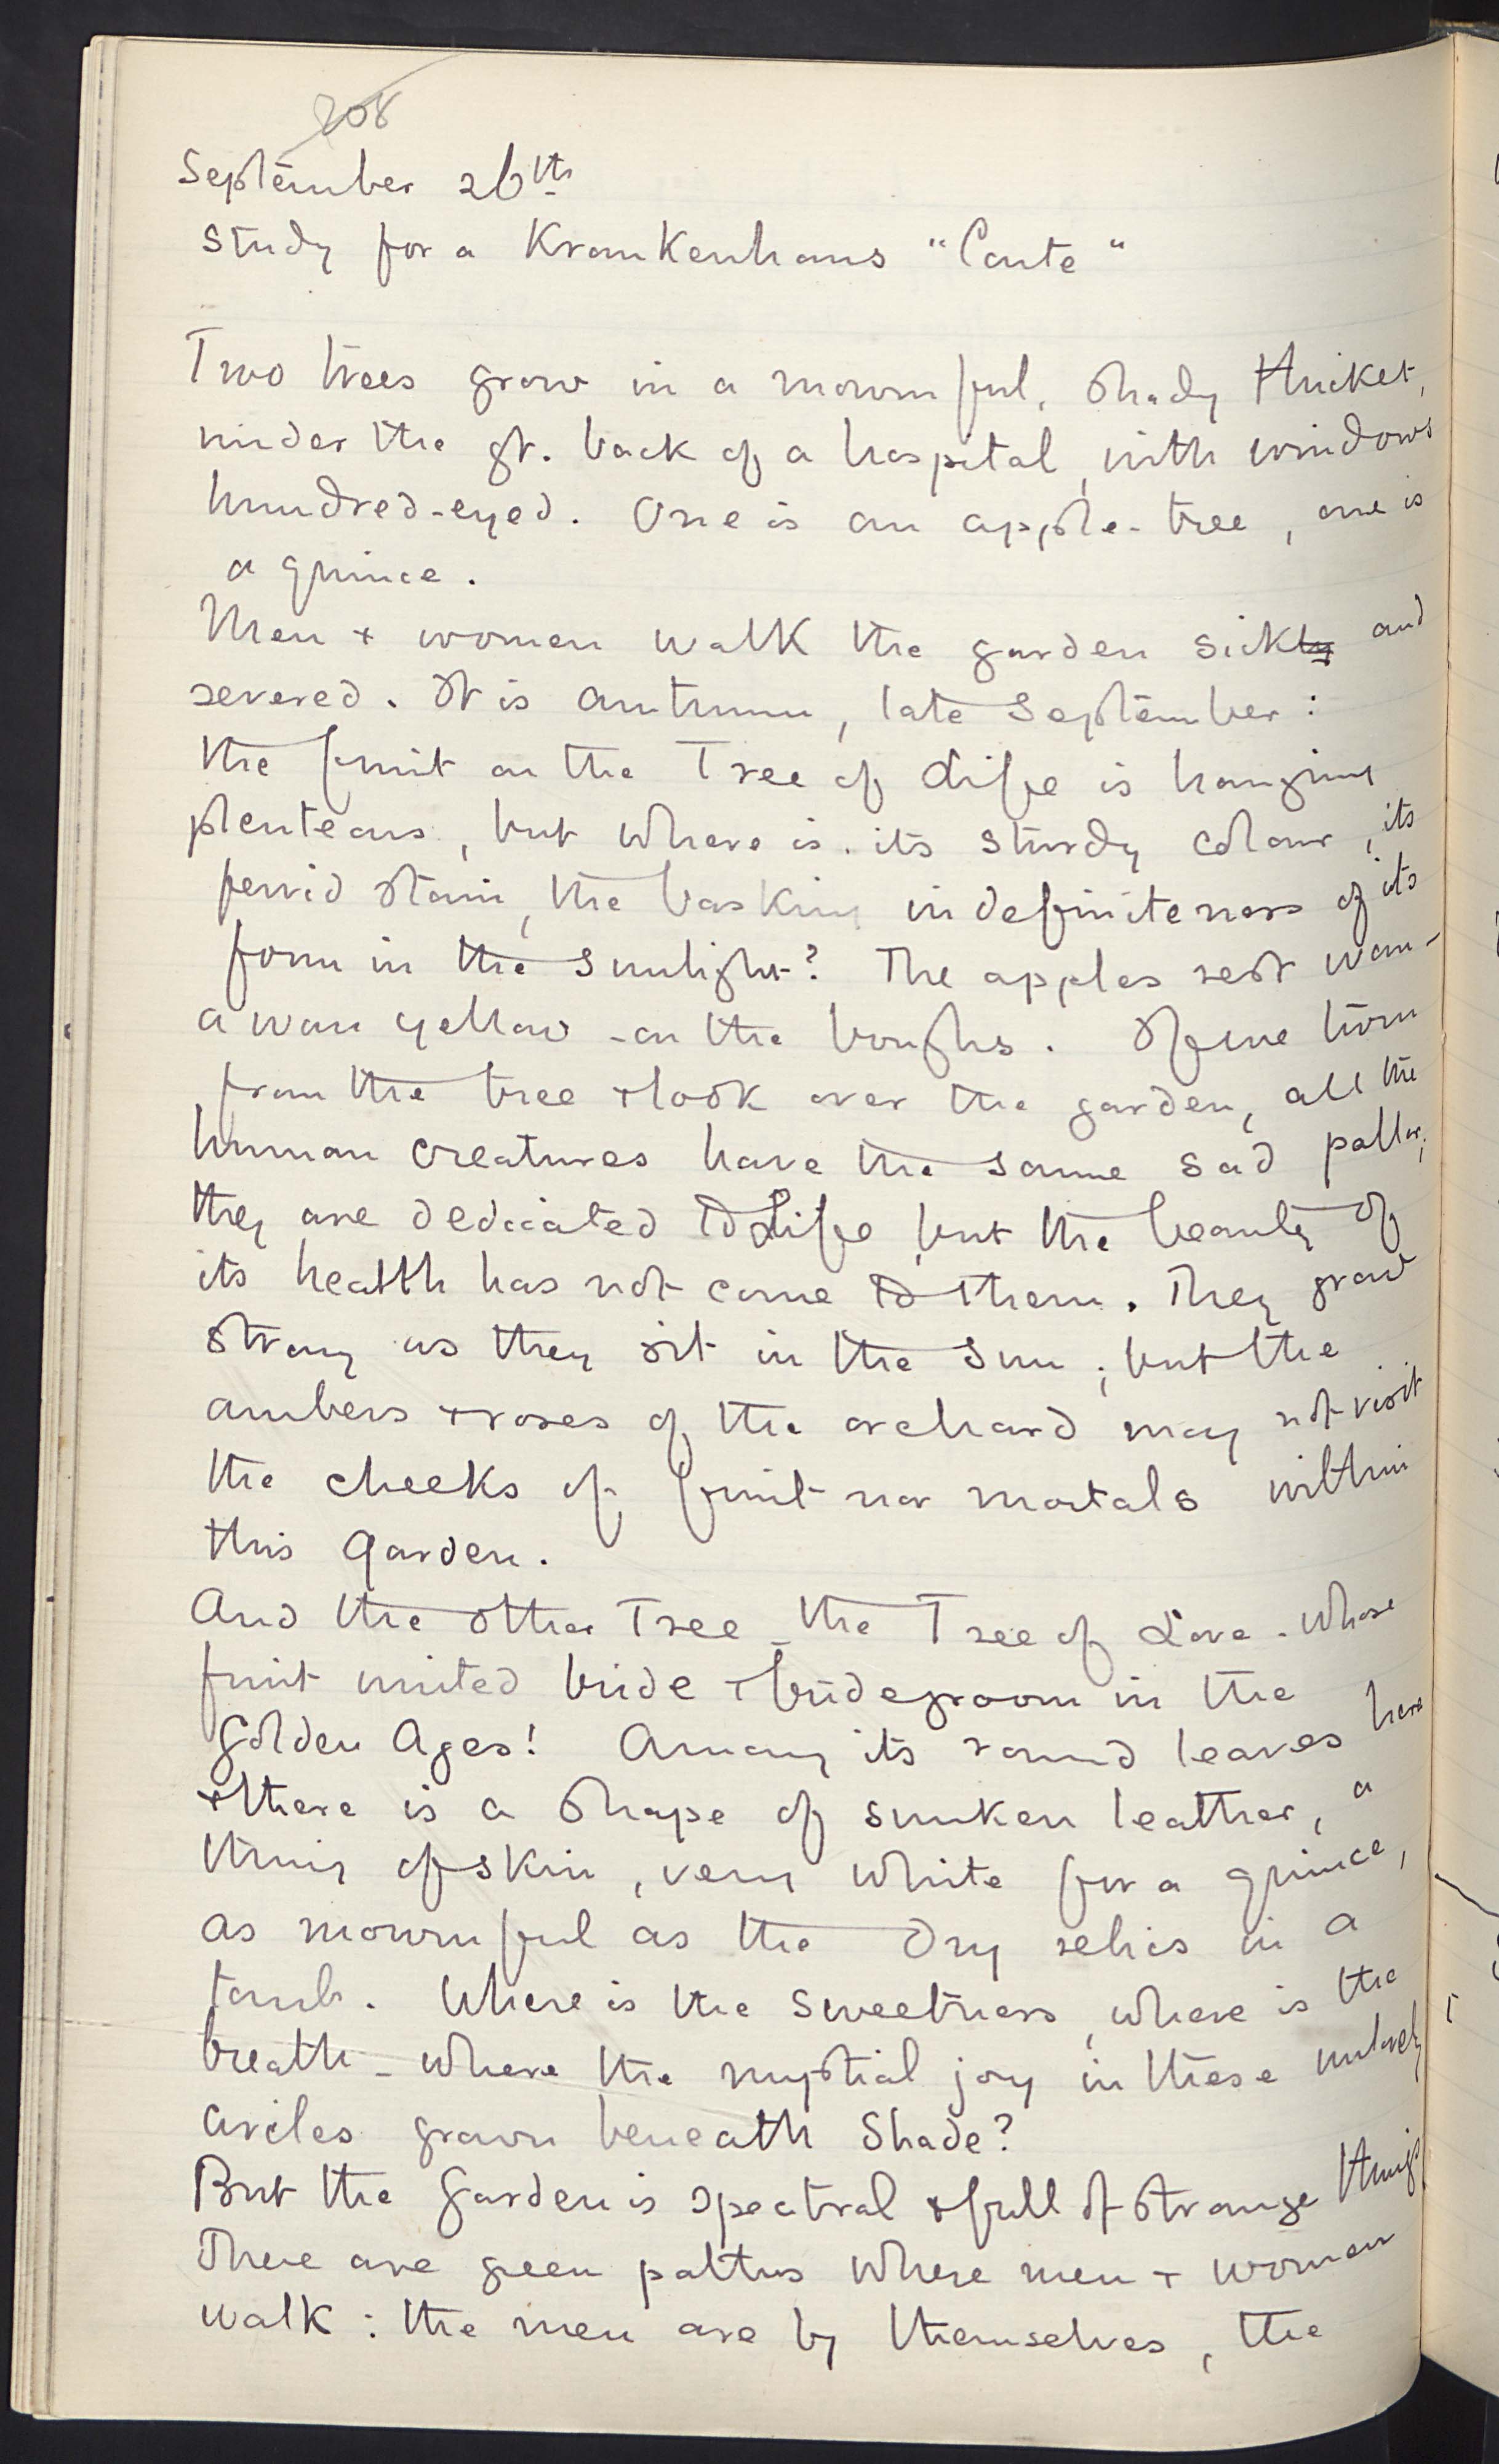 208
September 26th
Study for a Krankenhaus "Conte"
Two trees grow in a mournful, shady thicket,
under the gt. back of a hospital, with windows
hundred-eyed. One is an apple-tree, one is
a quince.
Men + women walk the garden sickly and
severed. It is autumn, late September:
the fruit on the Tree of Life is hanging
plenteous, but where is its sturdy colour, its
fervid stain, the basking indefiniteness of its
form in the sunlight? The apples rest wan -
a wan yellow - on the boughs. If one turn
from the tree + look over the garden, all the
human creatures have the same sad pallor;
they are dedicated to Life but the beauty of
its health has not come to them. They grow
strong as they sit in the sun; but the
ambers + roses of the orchard may not visit
the cheeks of fruit nor mortals within
this garden.
And the other Tree - the Tree of Love - whose
fruit united bride + bridegroom in the
Golden Ages! Among its round leaves here
+ there is a shape of sunken leather, a
thing of skin, very white for a quince,
as mournful as the dry relics in a
tomb. Where is the sweetness, where is the
breath - where the nuptial joy in these unlovely
circles grown beneath shade?
But the Garden is spectral + full of strange things
There are green paths where men + women
walk: the men are by themselves, the